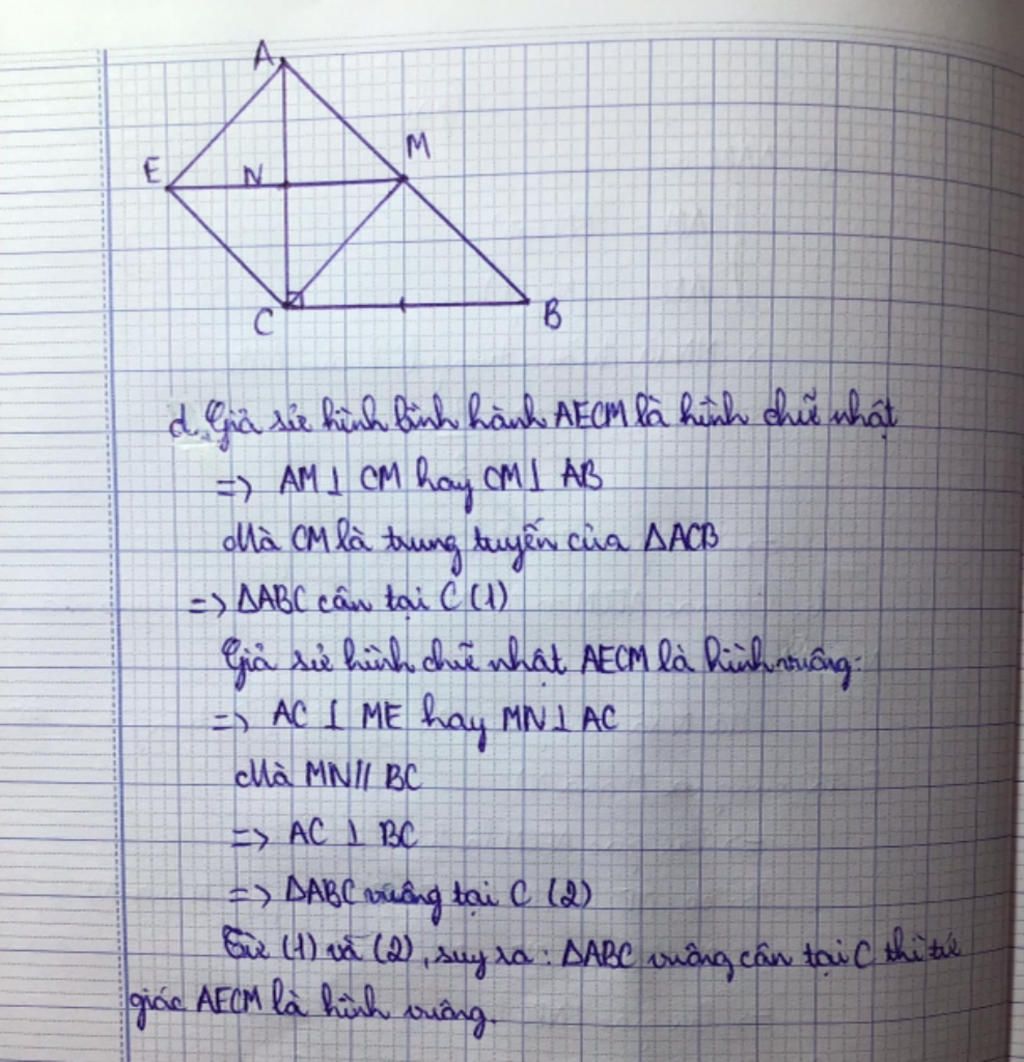 A
M
E
N
C
B
d. Giả sử hình bình hành AECM là hình chữ nhật
=> AM ⊥ CM hay CM ⊥ AB
Mà CM là trung tuyến của ΔACB
=> ΔABC cân tại C (1)
Giả sử hình chữ nhật AECM là hình vuông:
=> AC ⊥ ME hay MN ⊥ AC
Mà MN // BC
=> AC ⊥ BC
=> ΔABC vuông tại C (2)
Từ (1) và (2), suy ra : ΔABC vuông cân tại C thì tứ
giác AECM là hình vuông.